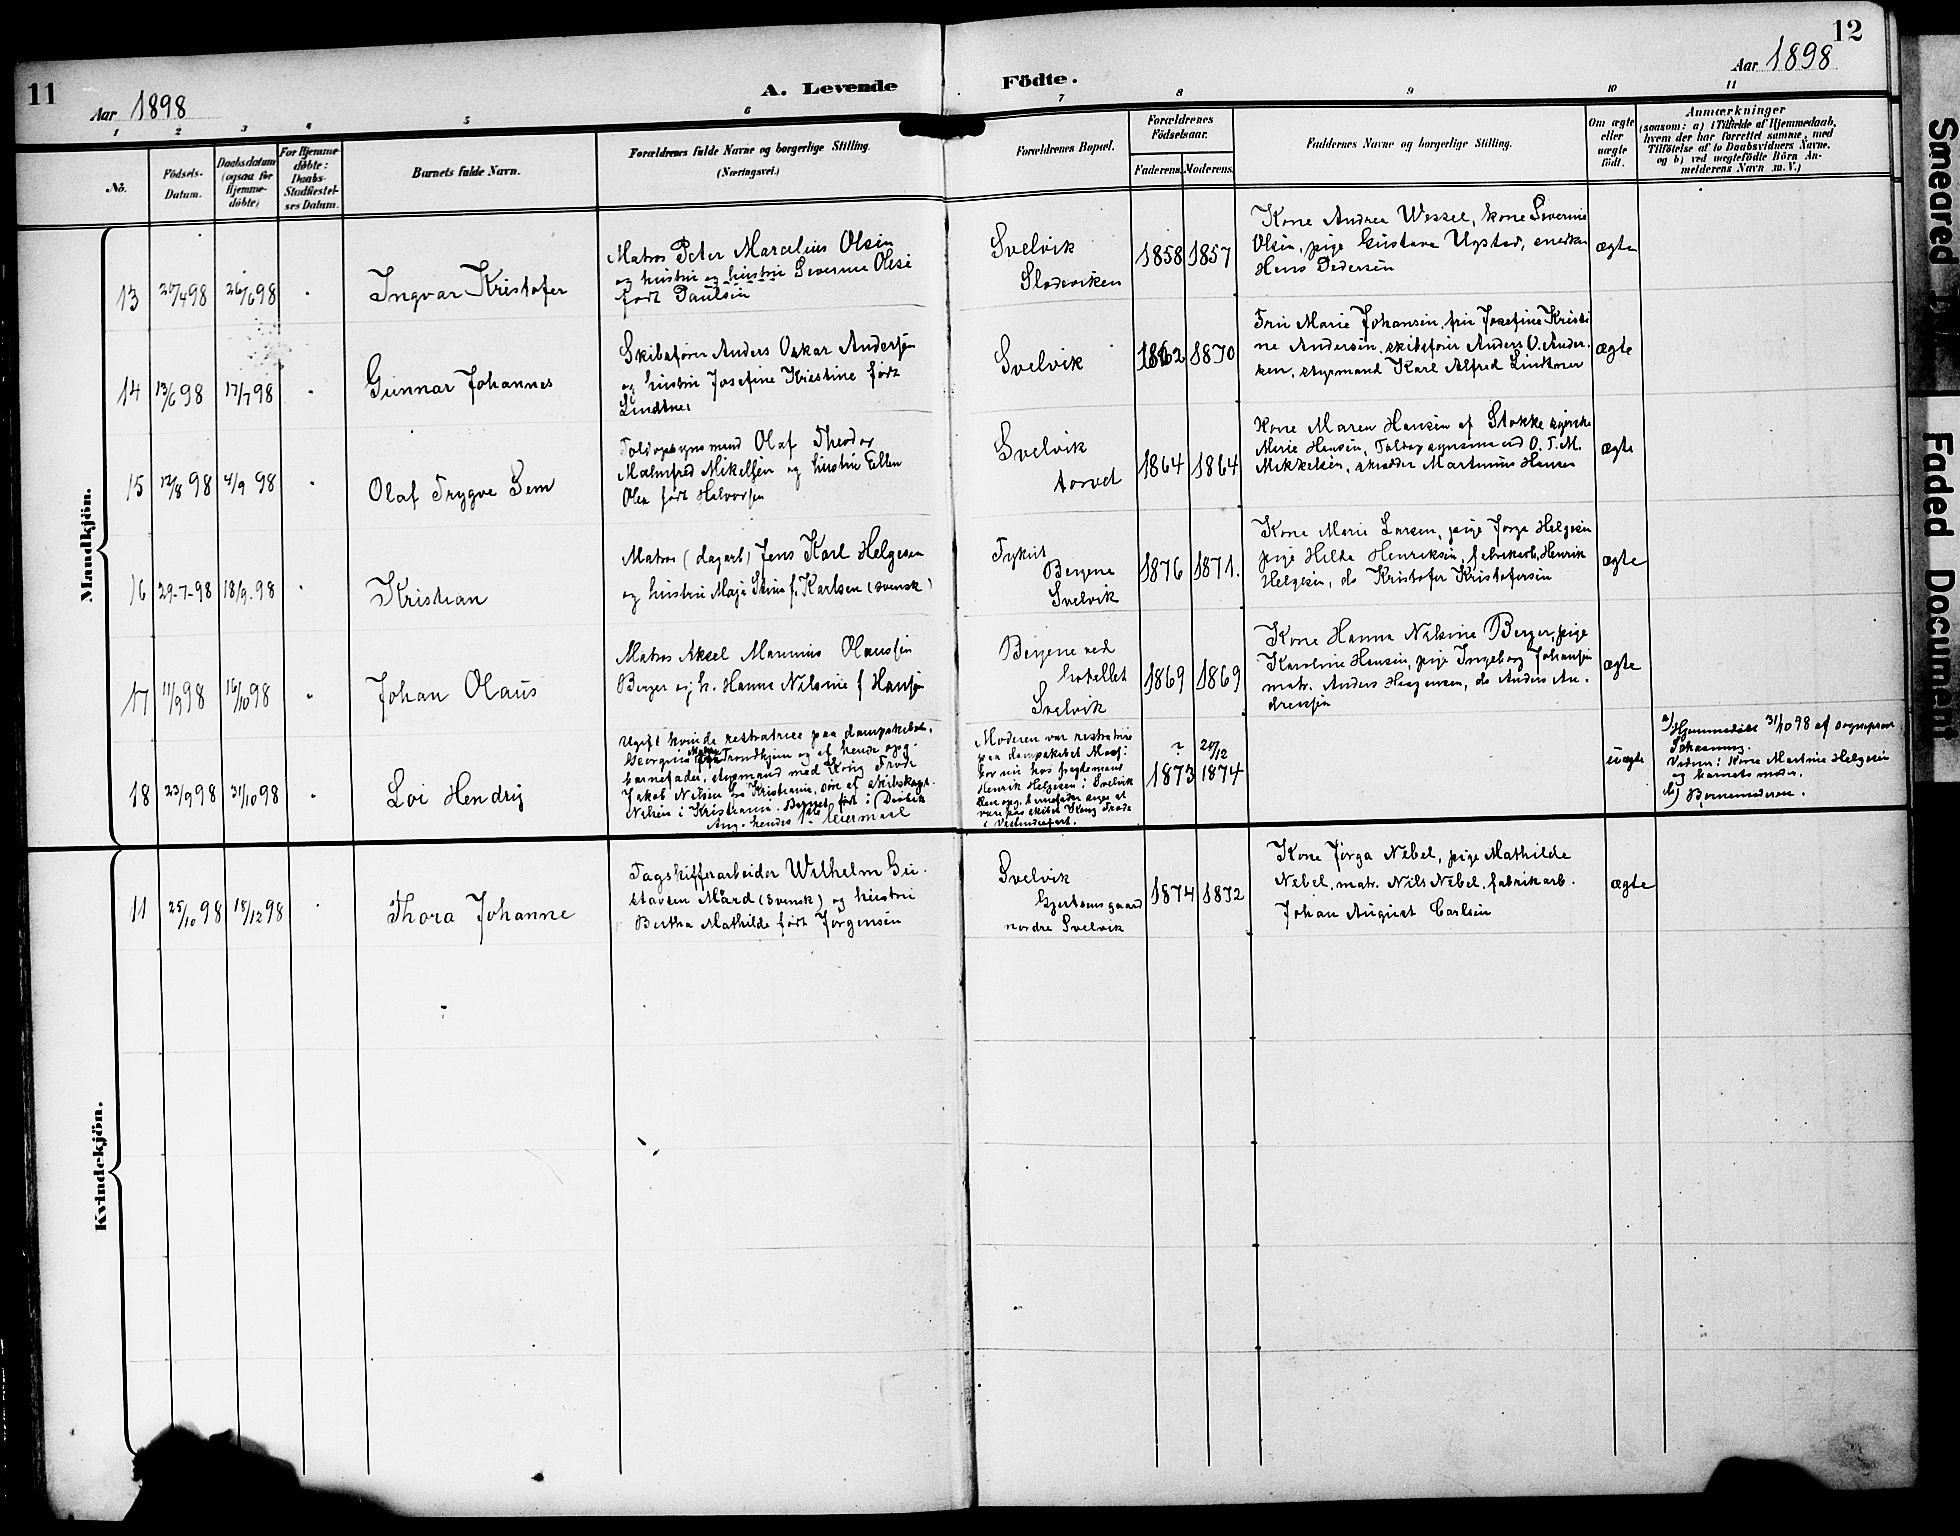 11
Aar 1898
A. Levende
Födte.
12
Aar 1898
1 2 3 4 5 6 7 8 9 10 11
No.
Födsels-
Datum.
Daabsdatum
(ogsaa for
Hjemme-
døbte)
For Hjemme-
døbte:
Daabs-
Stadfæstel-
ses Datum.
Barnets fulde Navn.
Forældrenes fulde Navne og borgerlige Stilling.
(Næringsvei.)
Forældrenes Bopæl.
Forældrenes
Födselsaar.
Faderens. Moderens.
Faddernes Navne og borgerlige Stilling.
Om ægte
eller
uægte
født.
Anmærkninger
(saasom: a) i Tilfælde af Hjemmedaab,
hvem der har forrettet samme, med
Tilföielse af to Daabsvidners Navne,
og b) ved uægtefödte Börn An-
melderens Navn m. V.)
Mandkjön.
13
20/4 98
26/6 98
Ingvar Kristofer
Matros Peter Marcelius Olsen
og hustru og hustru Severine Olse
født Paulsen
Svelvik
1858 1857
Kone Andrea Wessel, kone Severine
Olsen, pige Gustava Ugstad, snedker
Hans Pedersen
ægte
14
13/6 98
17/7 98
Gunnar Johannes
Skibsfører Anders Oskar Andersen
og hustru Josefine Kristine født
Lindtner
Svelvik
1862 1870
Fru Marie Johansen, fru Josefine Kristi
ne Andersen, skibsfører Anders O. Ander-
sen, styrmand Karl Alfred Lindtner
ægte
15
12/8 98
4/9 98
Olaf Trygve Sem
Toldopsynsmand Olaf Theodor
Malmfred Mikelsen og hustru Ellen
Olea født Halvorsen
Svelvik
torvet
1864 1864
Kone Maren Hansen af Stokke
Marie Hansen, Toldopsynsmand O. T. M.
Mikkelsen, skrædder Martinius Hansen
ægte
16
29-7-98
18/9 98
Kristian
Matros (dagarb) Jens Karl Helgesen
og hustru Maja Stina f. Karlsen (svensk)
Bergene
Svelvik
1876 1871.
Kone Marie Larsen, pige Jorga Helgesen
pige Hilda Henriksen, fabrikarb. Henrik
Helgesen, do Kristofer Kristofersen
ægte
17
11/9 98
16/10 98
Johan Olaus
Matros Aksel Marinius Olaussen
Berger og h. Hanna Nilsine f Hansen
Bergene ved
hotellet
Svelvik
1869 1869
Kone Hanna Nilsine Berger, pige
Karoline Hansen, pige Ingeborg Johansen
matr. Anders Haagensen, do Anders An-
dreasen
ægte
18
23/9 98
31/10 98
Loi Hendrij
Ugift kvinde restratrice paa dampskibet
Trondhjem og af hende opg.
barnefader, styrmand med Kong Frode
Jakob Nilsen fra Kristiania, søn af skibskapt.
Nilsen i Kristiania. Barnet født i Drøbak
Ang. hendes 1ste leiermaal
Moderen var restratrice
paa dampskibet
bor nu hos fragtemand
Henrik Helgesen i Svelvik
Den opg. barnefader siges at
være paa skibet Kong Frode
i Vestindiefart.
?
1873
21/12
1874
uægte
a) Hjemmedøbt 31/10 98 af sognepræst
Johanning.
Vidner: Kone Martine Helgesen
og barnets moder.
b) Barnemoderen.
Kvindekjön.
11
25/10 98
18/12 98
Thora Johanne
Tagskifferarbeider Wilhelm Gu-
stavsen Mård (svensk) og hustru
Bertha Mathilde født Jørgensen
Svelvik
nordre Svelvik
1874 1872
Kone Jørga Nebel, pige Mathilde
Nebel, matr. Nils Nebel, fabrikarb.
Johan August Carlsen
ægte
Smeared
Faded Document